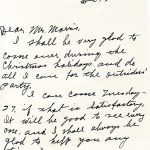 Dear Mr. Morris,
I shall be very glad to
come over during the
Christmas holidays and do
all I can for the outsiders'
Party.
I can come Tuesday-
27 if that is satisfactory.
It will be good to see every
one and I shall always be
glad to help you any